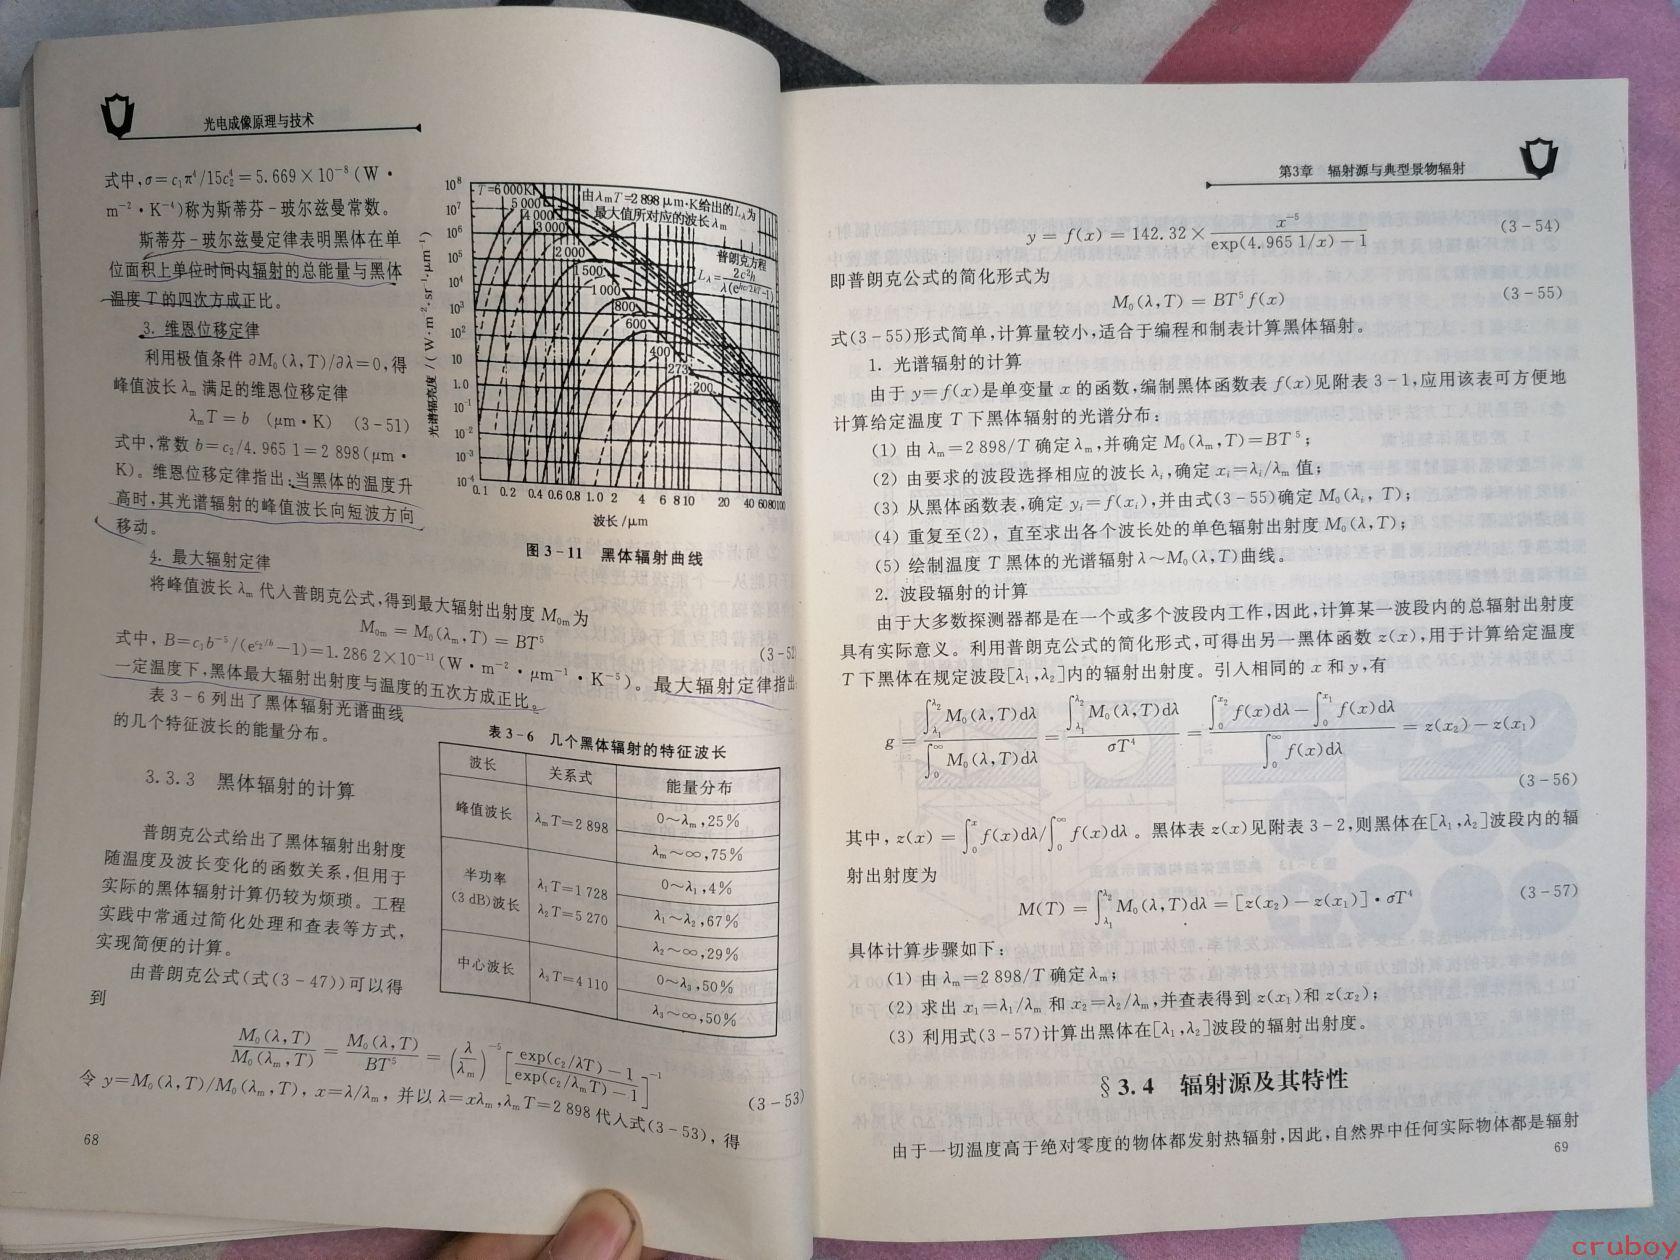 光电成像原理与技术
式中,σ=c₁π⁴/15c₂⁴=5.669×10⁻⁸(W·
m⁻²·K⁻⁴)称为斯蒂芬-玻尔兹曼常数。
斯蒂芬-玻尔兹曼定律表明黑体在单
位面积上单位时间内辐射的总能量与黑体
温度 T 的四次方成正比。
3. 维恩位移定律
利用极值条件 ∂M₀(λ,T)/∂λ=0,得
峰值波长 λₘ 满足的维恩位移定律
λₘT=b (μm·K) (3-51)
式中,常数 b=c₂/4.965 1=2 898(μm·
K)。维恩位移定律指出:当黑体的温度升
高时,其光谱辐射的峰值波长向短波方向
移动。
10⁸
10⁷
10⁶
10⁵
10⁴
10³
10²
10
1.0
10⁻¹
10⁻²
10⁻³
10⁻⁴
光谱辐亮度/(W·m⁻²·sr⁻¹·μm⁻¹)
T=6 000K
5 000
4 000
3 000
2 000
1 500
1 000
800
600
400
273
200
由λₘT=2 898 μm·K给出的L_λ为
最大值所对应的波长λₘ
普朗克方程
0.1 0.2 0.4 0.6 0.8 1.0 2 4 6 8 10 20 40 60 80 100
波长/μm
图 3-11 黑体辐射曲线
4. 最大辐射定律
将峰值波长 λₘ 代入普朗克公式,得到最大辐射出射度 M₀ₘ为
M₀ₘ = M₀(λₘ,T) = BT⁵ (3-52
式中, B=c₁b⁻⁵/(e^(c₂/b)-1)=1.286 2×10⁻¹¹(W·m⁻²·μm⁻¹·K⁻⁵)。最大辐射定律指出
一定温度下,黑体最大辐射出射度与温度的五次方成正比。
表 3-6 列出了黑体辐射光谱曲线
的几个特征波长的能量分布。
3.3.3 黑体辐射的计算
普朗克公式给出了黑体辐射出射度
随温度及波长变化的函数关系,但用于
实际的黑体辐射计算仍较为烦琐。工程
实践中常通过简化处理和查表等方式,
实现简便的计算。
由普朗克公式(式(3-47))可以得
到
表 3-6 几个黑体辐射的特征波长
波长 关系式 能量分布
峰值波长 λₘT=2 898 0～λₘ,25%
λₘ～∞,75%
半功率
(3 dB)波长
λ₁T=1 728
λ₂T=5 270
0～λ₁,4%
λ₁～λ₂,67%
λ₂～∞,29%
中心波长 λ₃T=4 110 0～λ₃,50%
λ₃～∞,50%
M₀(λ,T)/M₀(λₘ,T) = M₀(λ,T)/BT⁵ = (λ/λₘ)⁻⁵[(exp(c₂/λT)-1)/(exp(c₂/λₘT)-1)]⁻¹ (3-53)
令 y=M₀(λ,T)/M₀(λₘ,T), x=λ/λₘ, 并以 λ=xλₘ,λₘT=2 898 代入式(3-53), 得
68
第3章 辐射源与典型景物辐射
y = f(x) = 142.32 × x⁻⁵/(exp(4.965 1/x) - 1) (3-54)
即普朗克公式的简化形式为
M₀(λ,T) = BT⁵f(x) (3-55)
式(3-55)形式简单,计算量较小,适合于编程和制表计算黑体辐射。
1. 光谱辐射的计算
由于 y=f(x)是单变量 x 的函数,编制黑体函数表 f(x)见附表 3-1,应用该表可方便地
计算给定温度 T 下黑体辐射的光谱分布:
(1) 由 λₘ=2 898/T 确定λₘ,并确定 M₀(λₘ,T)=BT⁵;
(2) 由要求的波段选择相应的波长 λᵢ,确定 xᵢ=λᵢ/λₘ 值;
(3) 从黑体函数表,确定 yᵢ=f(xᵢ),并由式(3-55)确定 M₀(λᵢ, T);
(4) 重复至(2), 直至求出各个波长处的单色辐射出射度 M₀(λ,T);
(5) 绘制温度 T 黑体的光谱辐射 λ～M₀(λ,T)曲线。
2. 波段辐射的计算
由于大多数探测器都是在一个或多个波段内工作,因此,计算某一波段内的总辐射出射度
具有实际意义。利用普朗克公式的简化形式,可得出另一黑体函数 z(x),用于计算给定温度
T 下黑体在规定波段[λ₁,λ₂]内的辐射出射度。引入相同的 x 和 y,有
g = ∫_λ₁^λ₂ M₀(λ,T)dλ / ∫₀^∞ M₀(λ,T)dλ = ∫_λ₁^λ₂ M₀(λ,T)dλ / σT⁴ = (∫₀^x₂ f(x)dλ - ∫₀^x₁ f(x)dλ) / ∫₀^∞ f(x)dλ = z(x₂) - z(x₁)
(3-56)
其中, z(x) = ∫₀^x f(x)dλ/∫₀^∞ f(x)dλ 。黑体表 z(x)见附表 3-2,则黑体在[λ₁,λ₂]波段内的辐
射出射度为
M(T) = ∫_λ₁^λ₂ M₀(λ,T)dλ = [z(x₂) - z(x₁)]·σT⁴ (3-57)
具体计算步骤如下:
(1) 由 λₘ=2 898/T 确定 λₘ;
(2) 求出 x₁=λ₁/λₘ 和 x₂=λ₂/λₘ,并查表得到 z(x₁)和 z(x₂);
(3) 利用式(3-57)计算出黑体在[λ₁,λ₂]波段的辐射出射度。
§3.4 辐射源及其特性
由于一切温度高于绝对零度的物体都发射热辐射,因此,自然界中任何实际物体都是辐射
69
cruboy